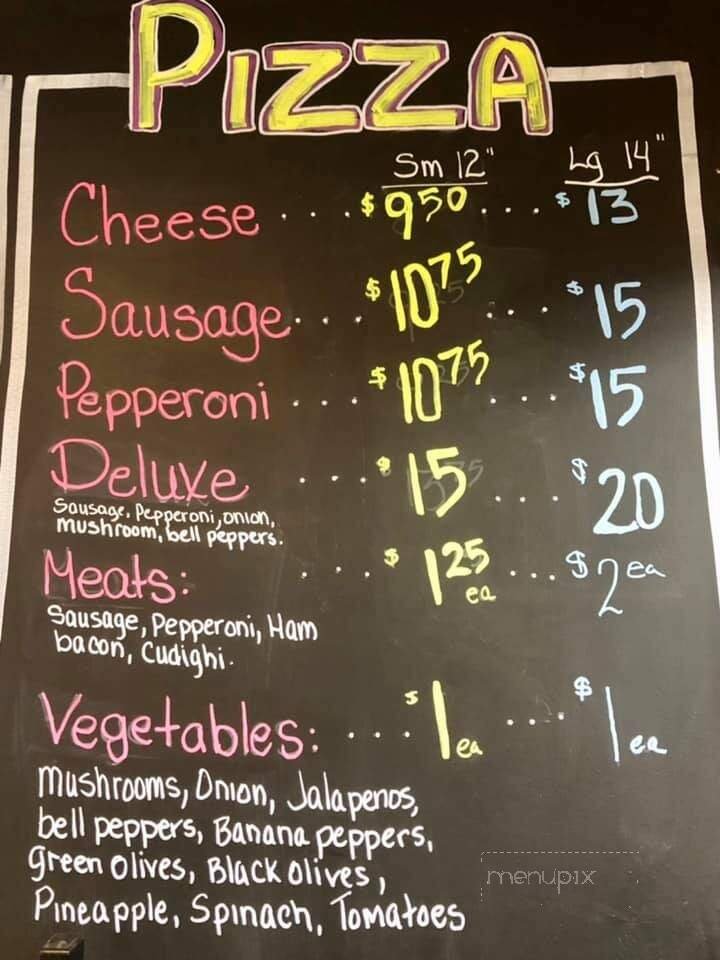 PIZZA
Sm 12" Lg 14"
Cheese . . . . $9.50 . . . . $13
Sausage . . . . $10.75 . . . $15
Pepperoni . . . . $10.75 . . . $15
Deluxe . . . . $15 . . . . $20
Sausage, Pepperoni, onion,
mushroom, bell peppers.
Meats: . . . . $1.25 ea . . . $2 ea
Sausage, Pepperoni, Ham
bacon, Cudighi.
Vegetables: . . . . $1 ea . . . . $1 ea
Mushrooms, Onion, Jalapenos,
bell peppers, Banana peppers,
green olives, Black olives,
Pineapple, Spinach, Tomatoes
menupix